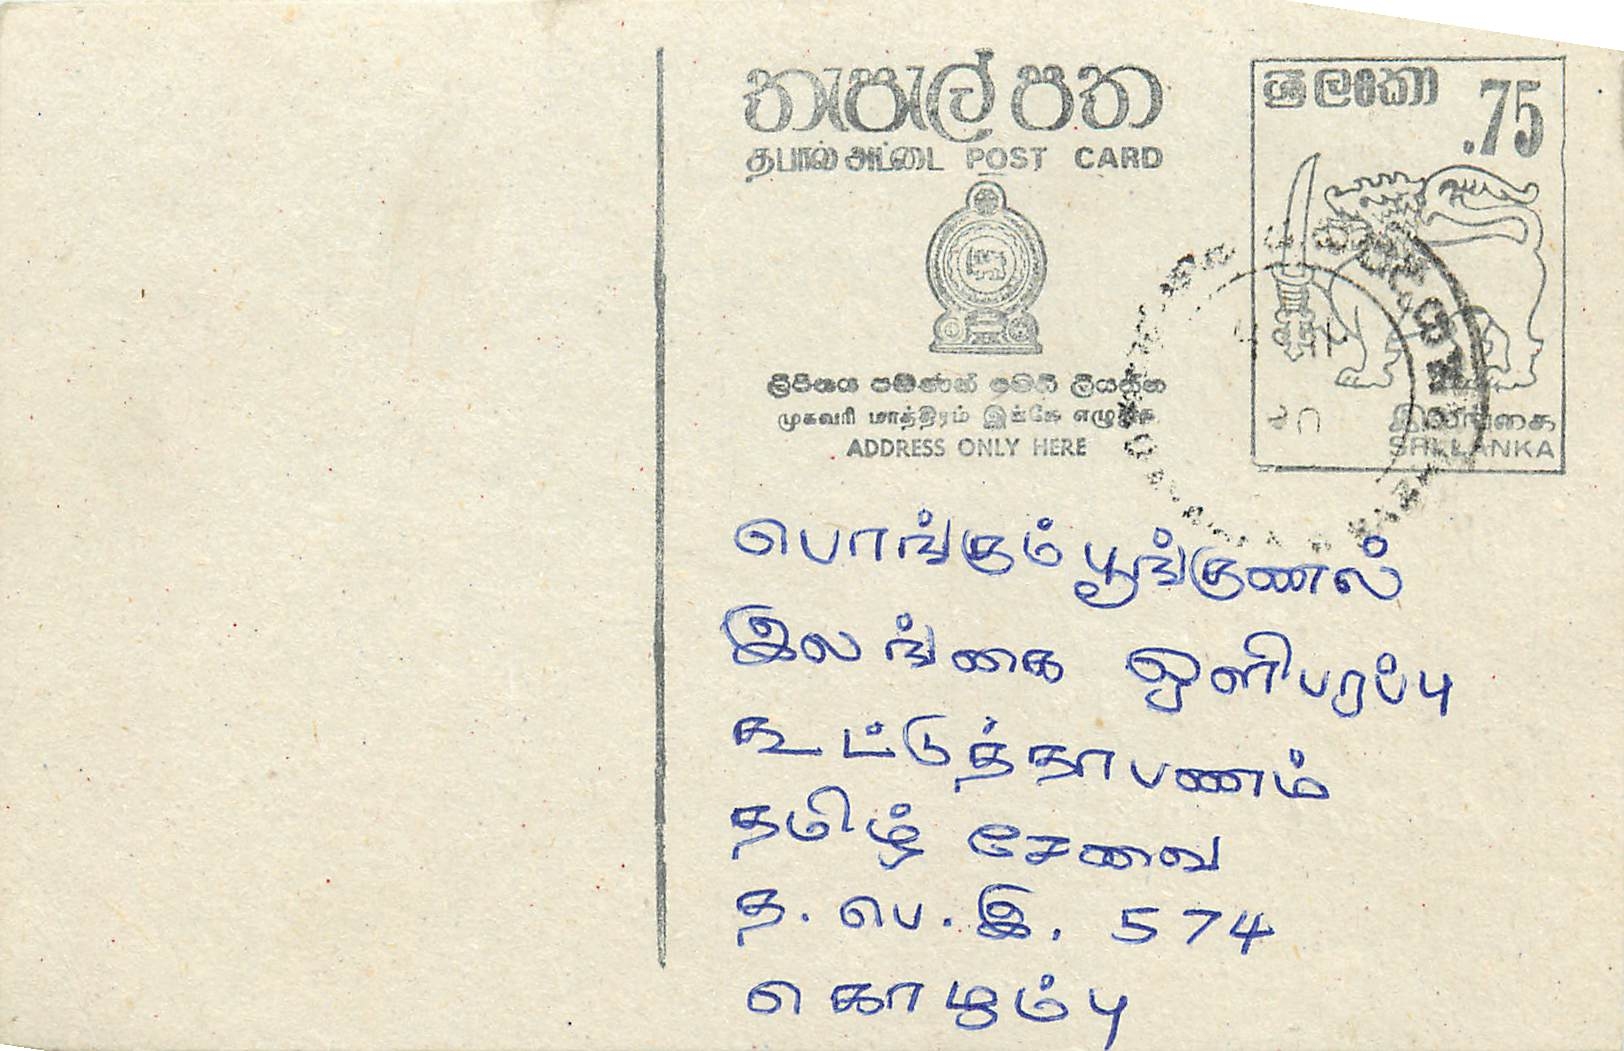 තැපැල් පත
தபால் அட்டை POST CARD
ලිපිනය පමණක් මෙහි ලියන්න
முகவரி மாத்திரம் இங்கே எழுதுக
ADDRESS ONLY HERE
ශ්‍රී ලංකා
.75
இலங்கை
SRI LANKA
பொங்கும் பூங்குணல்
இலங்கை ஒளிபரப்பு
கூட்டுத்தாபணம்
தமிழ் சேவை
த. பெ. இ. 574
கொழும்பு